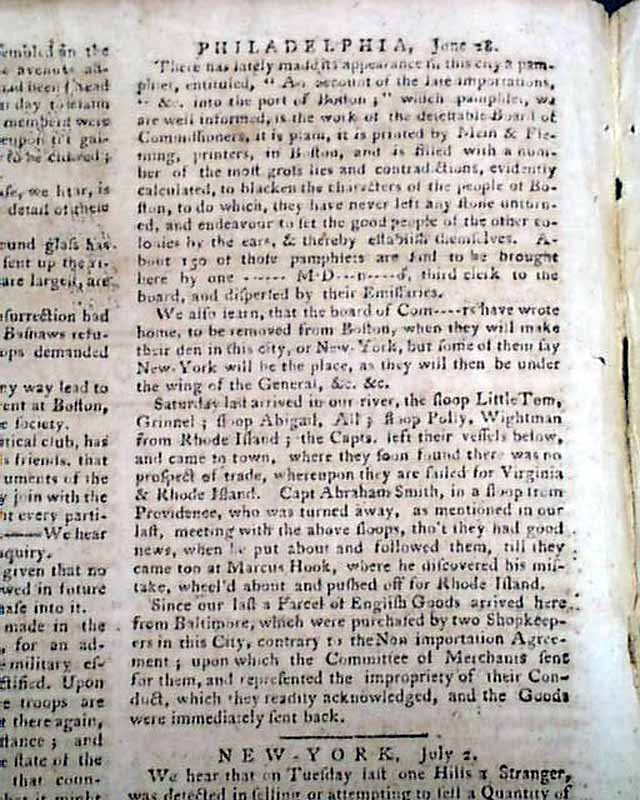 sembled in the
e avenues ad-
had been f read
day to
members were
upon tri gal-
to be cleared ;
se, we hear, is
detail of these
ound glass has
sent up the ri-
are largest, are
surrection had
Bashaws refu-
ops demanded
ny way lead to
rent at Boston,
e society.
tical club, has
s friends, that
uments of the
y join with the
nt every parti-
.——We hear
nquiry.
given that no
wed in future
hase into it.
made in the
, for an ad-
military es-
ctified. Upon
e troops are
t there again,
stance ; and
e state of the
that coun-
that it might
PHILADELPHIA, June 28.
There has lately made its appearance in this city a pam-
phlet, entituled, " An account of the late importations,
" &c. into the port of Boston ;" which pamphlet, we
are well informed, is the work of the detestable Board of
Commissioners, it is plain, it is printed by Mein & Fle-
ming, printers, in Boston, and is filled with a num-
ber of the most gross lies and contradictions, evidently
calculated, to blacken the characters of the people of Bo-
ston, to do which, they have never left any stone unturn-
ed, and endeavour to set the good people of the other co-
lonies by the ears, & thereby establish themselves. A-
bout 150 of those pamphlets are said to be brought
here by one ------ M‘D--n----d, third clerk to the
board, and dispersed by their Emissaries.
We also learn, that the board of Com----rs have wrote
home, to be removed from Boston, when they will make
their den in this city, or New-York, but some of them say
New-York will be the place, as they will then be under
the wing of the General, &c. &c.
Saturday last arrived in our river, the sloop Little Tom,
Grinnel ; sloop Abigail, All ; sloop Polly, Wightman
from Rhode Island ; the Capts. left their vessels below,
and came to town, where they soon found there was no
prospect of trade, whereupon they are sailed for Virginia
& Rhode Island. Capt Abraham Smith, in a sloop from
Providence, who was turned away, as mentioned in our
last, meeting with the above sloops, tho't they had good
news, when he put about and followed them, till they
came too at Marcus Hook, where he discovered his mis-
take, wheel'd about and pushed off for Rhode Island.
Since our last a Parcel of English Goods arrived here
from Baltimore, which were purchased by two Shopkeep-
ers in this City, contrary to the Non importation Agree-
ment ; upon which the Committee of Merchants sent
for them, and represented the impropriety of their Con-
duct, which they readily acknowledged, and the Goods
were immediately sent back.
NEW-YORK, July 2.
We hear that on Tuesday last one Hills a Stranger,
was detected in selling or attempting to sell a Quantity of